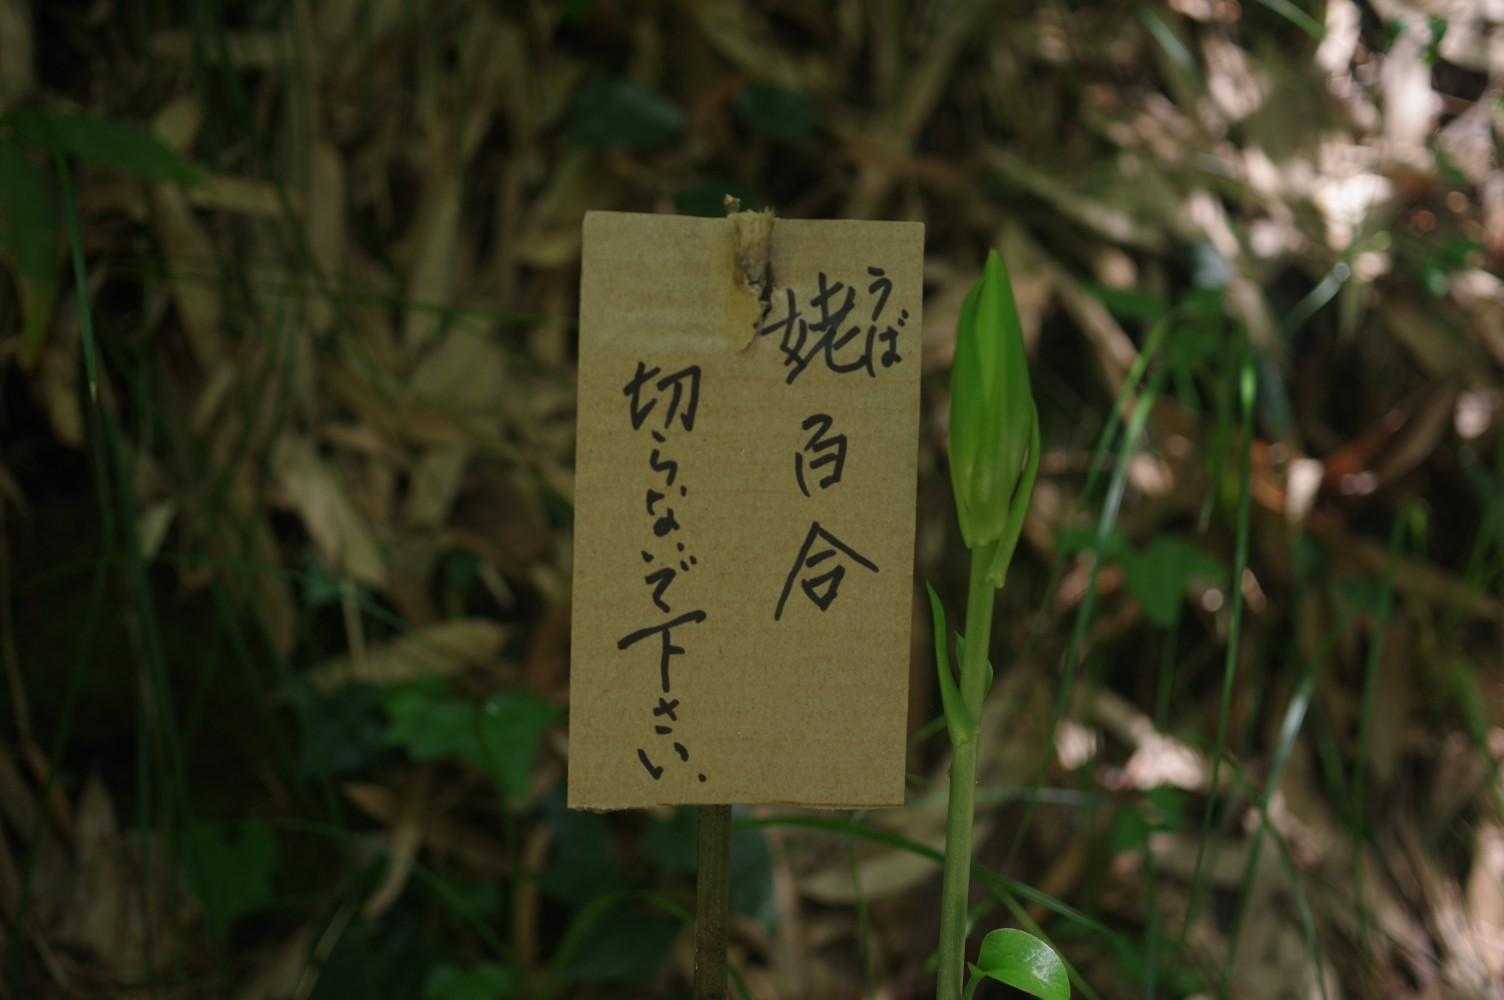 姥百合
うば
切らないで下さい.